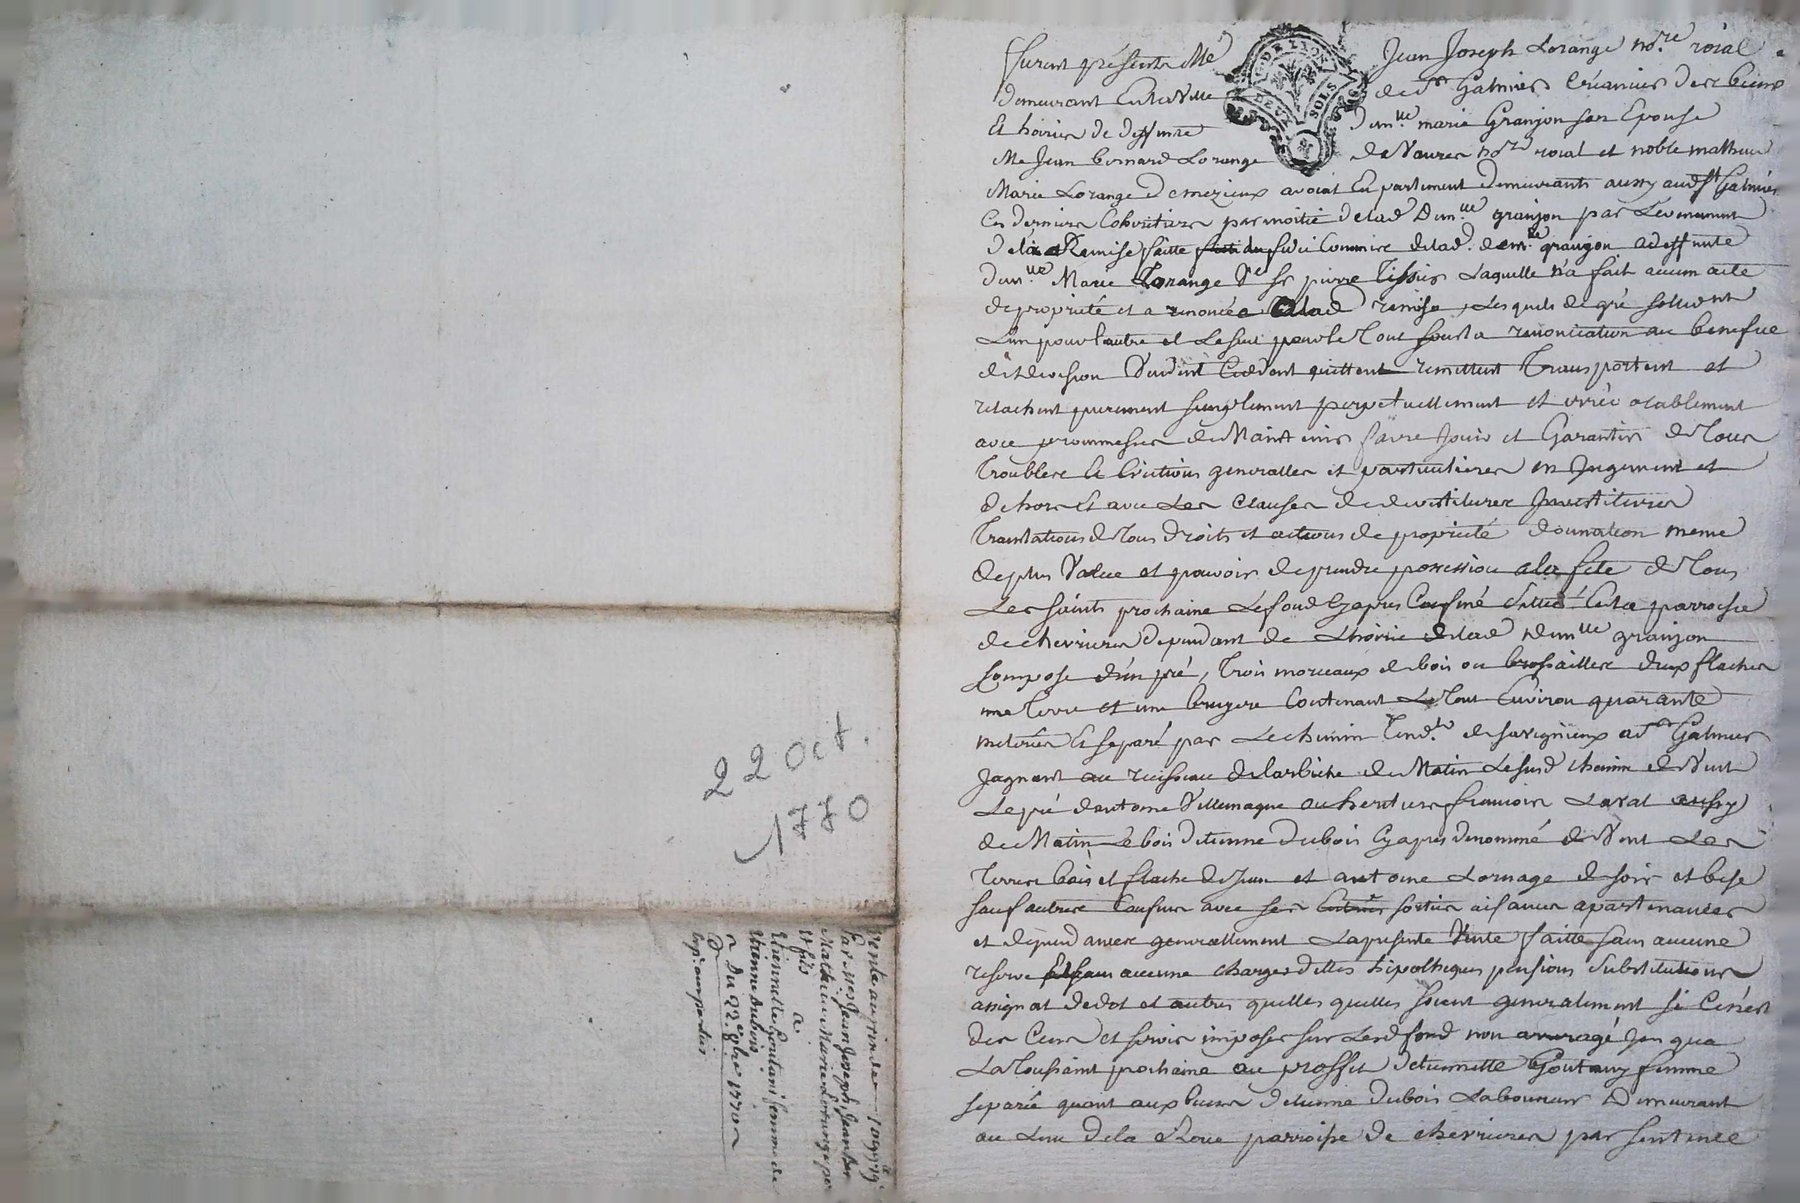 22 Oct.
1770
Vente au prix de
par Mes Jean Joseph, Jean Ber
Mathieu Marie Lorange pe
et fils
a
Etiennette Goutani femme de
Etienne Dubois
Du 22e 8bre 1770
Exp. aux parties
G. DE LYON
DEUX SOLS
furent présents Me Jean Joseph Lorange nore roial
demeurant en la Ville de St Galmier Créancier des biens
Et hoirie de deffunte demlle marie Granjon son Epouse
Me Jean bernard Lorange de Vaures nore roial et noble mathieu
Marie Lorange Demezieux avocat En parlement demeurants aussy aud St Galmier
Ces derniers Cohéritiers par moitié de lad Demlle granjon par Levenement
de la Remise faitte fidei Commire de lad. demlle granjon a deffunte
demlle Marie Lorange Ve Sr pierre Tissier Laquelle n'a fait aucun acte
de proprieté et a renoncée a lad remise, Lesquels de gré solident
Lun pour lautre et Le seul pour le Tout sous la renonciation au benefice
de division Vendent Cedent quittent remettent Transportent et
relachent purement simplement perpetuellement et irrévocablement
avec prommesses de Maintenir faire Jouir et Garantir de Tous
Troubles Et Evictions generalles et particulieres en Jugement et
dehors Et avec Les Clauses de devestitures Investitures
Translations de Tous droits et actions de proprieté donnation meme
de plus Value et pouvoir de prendre possession a la fete de Tous
Les saints prochaine Le fond Cyapres Confiné Situé En la parroisse
de chevrieres dependant de Lhoirie de lad demlle granjon
Composé d'un pré, Trois morceaux de bois ou brossailles deux flaches
une Terre et une bruyere Contenant Le Tout Environ quarante
meterées Et separé par Le chemin Tendt de savignieux a St Galmier
Jognant au ruisseau de larbiche de Matin Le susd chemin de Vent
Le pré dantoine Villemagne ou heritiers francois Laval aussy
de Matin Le bois detienne dubois Cyapres denommé de Vent Les
Terres bois et flache de Jean et antoine Lornage de soir et bise
sauf autres Confins avec ses Entrées sorties aisances apartenances
et dependances generallement La presente Vente faitte sans aucune
reserve Et sans aucune charges dettes hipotheques pensions substitutions
assignat de dot et autres quelles quelles soient generalement si Cen'est
des Cens et servis imposés sur Led fond non arreragé Jusqua
La Toussaint prochaine au proffit detiennette Goutany femme
separée quant aux biens detienne dubois Laboureur Demeurant
au Lieu de la Roue parroisse de chevrieres par sentence